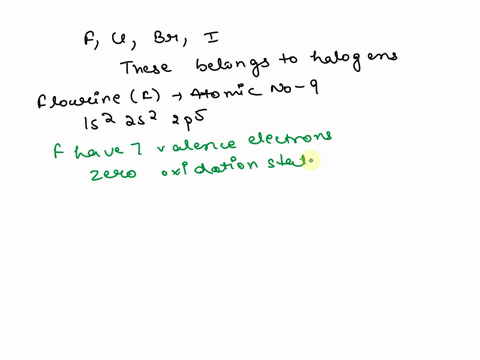 F, Cl, Br, I
These belongs to halogens
Flourine (F) → Atomic No - 9
1s² 2s² 2p⁵
F have 7 valence electrons
zero oxidation stat